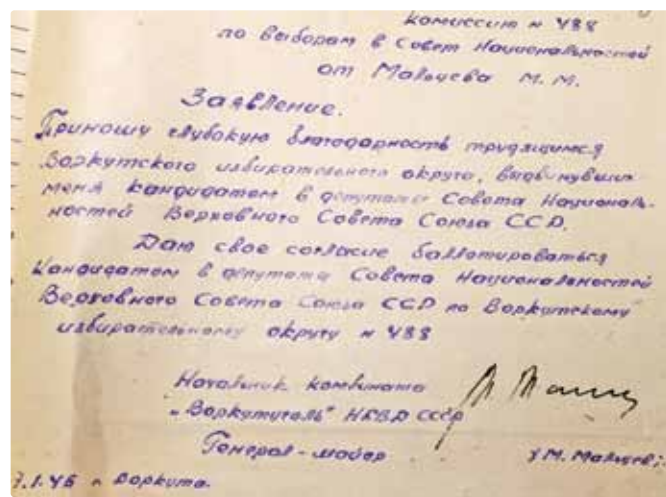 Комиссии № 488
по выборам в Совет Национальностей
от Мальцева М. М.
Заявление.
Приношу глубокую благодарность трудящимся
Воркутского избирательного округа, выдвинувшим
меня кандидатом в депутаты Совета Националь-
ностей Верховного Совета Союза ССР.
Даю свое согласие баллотироваться
кандидатом в депутаты Совета Национальностей
Верховного Совета Союза ССР по Воркутскому
избирательному округу № 488
Начальник комбината
„Воркутуголь" НКВД СССР
Генерал-майор
/М. Мальцев/
7.1.46 г. Воркута.